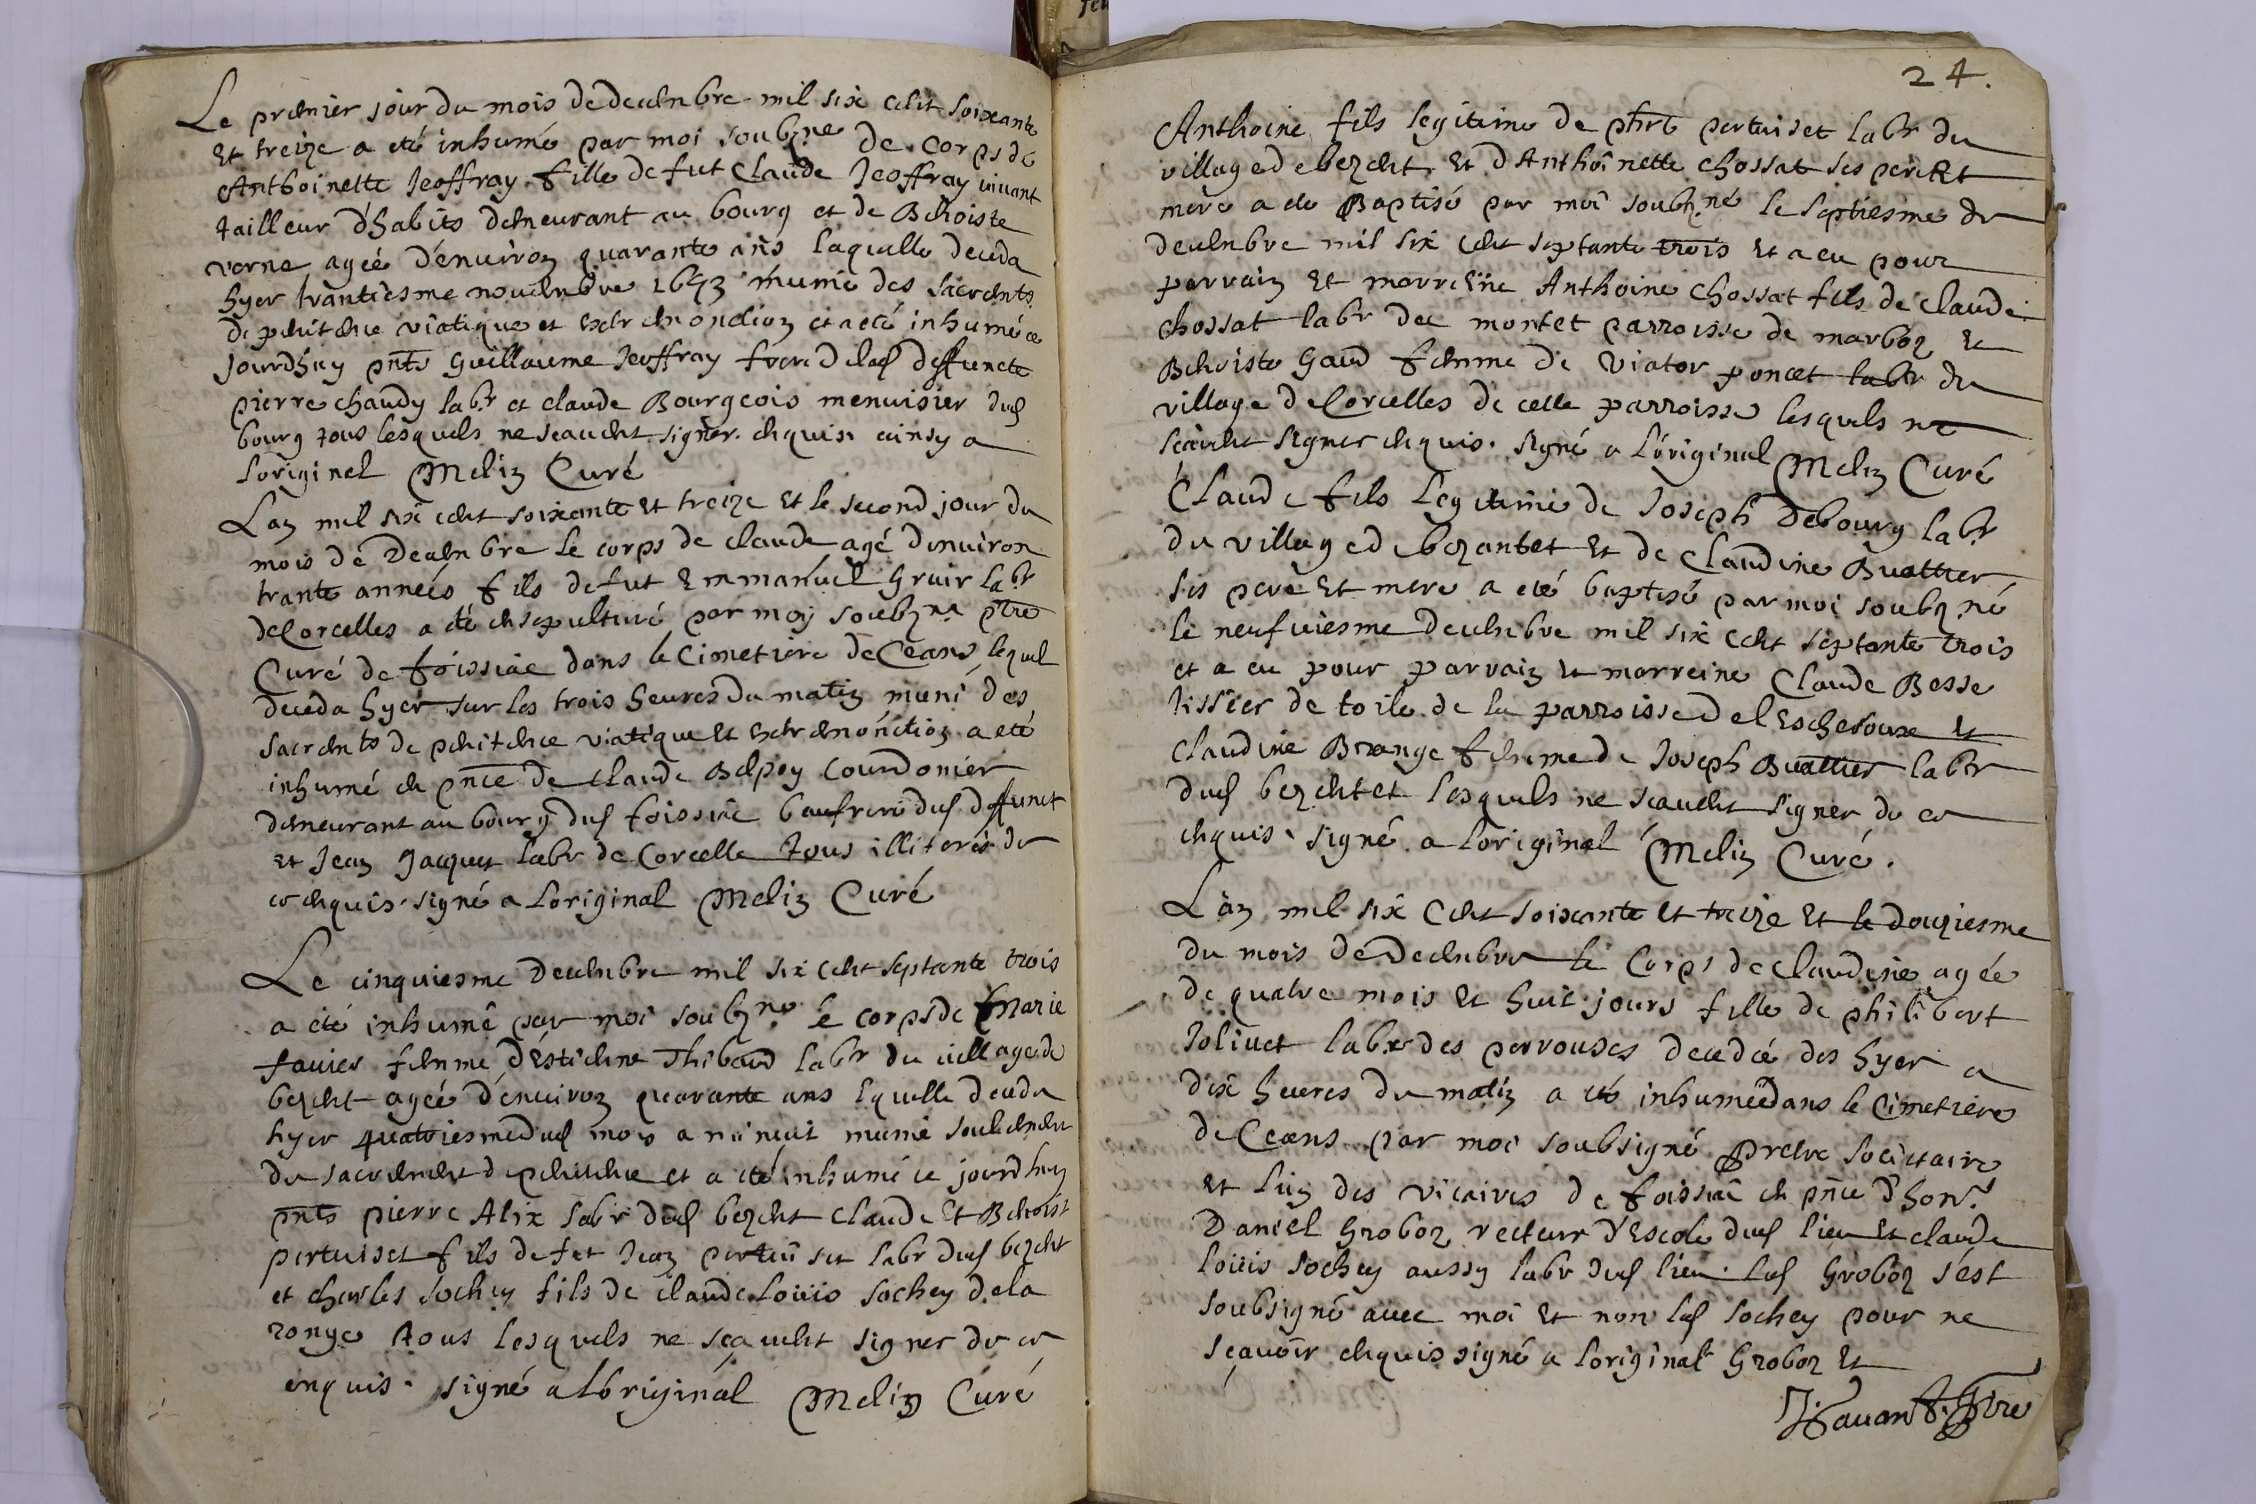 Le premier jour du mois de decembre mil six cent soixante
et treize a eté inhumé par moi soubzne de corps de
Anthoinette Jeoffray fille de fut Claude Jeoffray vivant
tailleur d'habits demeurant au bourg et de Benoiste
verne agée d'environ quarante ans laquelle deceda
hyer trantiesme novembre 1673 munie des sacrents
de penitence viatique et extremonction et a eté inhumée ce
jourdhuy pnts Guillaume Jeoffray frere de lad deffuncte
pierre chaudy labr et claude Bourgeois menuisier dud
bourg tous lesquels ne scavent signer enquis ainsy a
loriginel Melin Curé
Lan mil six cent soixante et treize et le second jour du
mois de Decembre le corps de claude agé denviron
trante années fils de fut Emmanuel Gruir labr
de Corcelles a eté ensepulturé par moy soubzne ptre
Curé de foissiac dans le Cimetiere de Ceans lequel
deceda hyer sur les trois heures du matin muni des
sacrents de penitence viatique et extremonction a eté
inhumé en pnce de Claude Belpoy courdonier
demeurant au bourg dud foissiac beaufrere dud deffunct
et Jean Jacquet labr de Corcelle tous illiterés de
ce enquis signé a Loriginal Melin Curé
Le cinquiesme Decembre mil six cent septante trois
a eté inhumé par moi soubzne le corps de Marie
favier femme d'Estienne Thibaud labr du village de
bezent agée d'environ quarante ans lequelle deceda
hyer quatriesme dud mois a minuit munie seulement
du sacrement de penitence et a eté inhumé ce jourdhuy
pnts pierre Alix labr dud bezent Claude et Benoist
pertuiset fils de fet Jean pertuiset labr dud bezent
et charles sochey fils de claude Louis sochey de la
ronge tous lesquels ne sçavent signer de ce
enquis signé a Loriginal Melin Curé
24.
Anthoine fils legitime de phrt pertuiset labr du
village de bezent et d'Anthoinette chossat ses pere et
mere a eté Baptisé par moi soubzné le septiesme de
decembre mil six cent septante trois et a eu pour
parrain et marreine Anthoine chossat fils de claude
chossat labr de montet parroisse de marboz et
Benoiste Gaud femme de Viator poncet labr du
village de Corcelles de cette parroisse lesquels ne
scavent signer enquis signé a Loriginal Melin Curé
Claude fils legitime de Joseph Debourg labr
du village de bezantet et de Claudine Buattier
ses pere et mere a eté baptisé par moi soubzné
le neufviesme decembre mil six cent septante trois
et a eu pour parrain et marreine Claude Besse
tissier de toile de la parroisse de lEscheroux et
claudine Berange femme de Joseph Buattier labr
dud bezentet lesquels ne scavent signer de ce
enquis signé a loriginal Melin Curé.
Lan mil six cent soixante et treize et le douziesme
du mois de Decembre le corps de claudine agée
de quatre mois et huit jours fille de philibert
Jolivet labr des perrouses decedée des hyer a
dix heures du matin a eté inhumée dans le Cimetiere
de Ceans par moi soubsigné Pretre societaire
et lun des vicaires de foissiac en pnce d'honr
Daniel Groboz recteur d'Escole dud lieu et claude
loüis sochey aussy labr dud lieu led Groboz s'est
soubsigné avec moi et non led sochey pour ne
sçavoir enquis signé a loriginal Groboz et